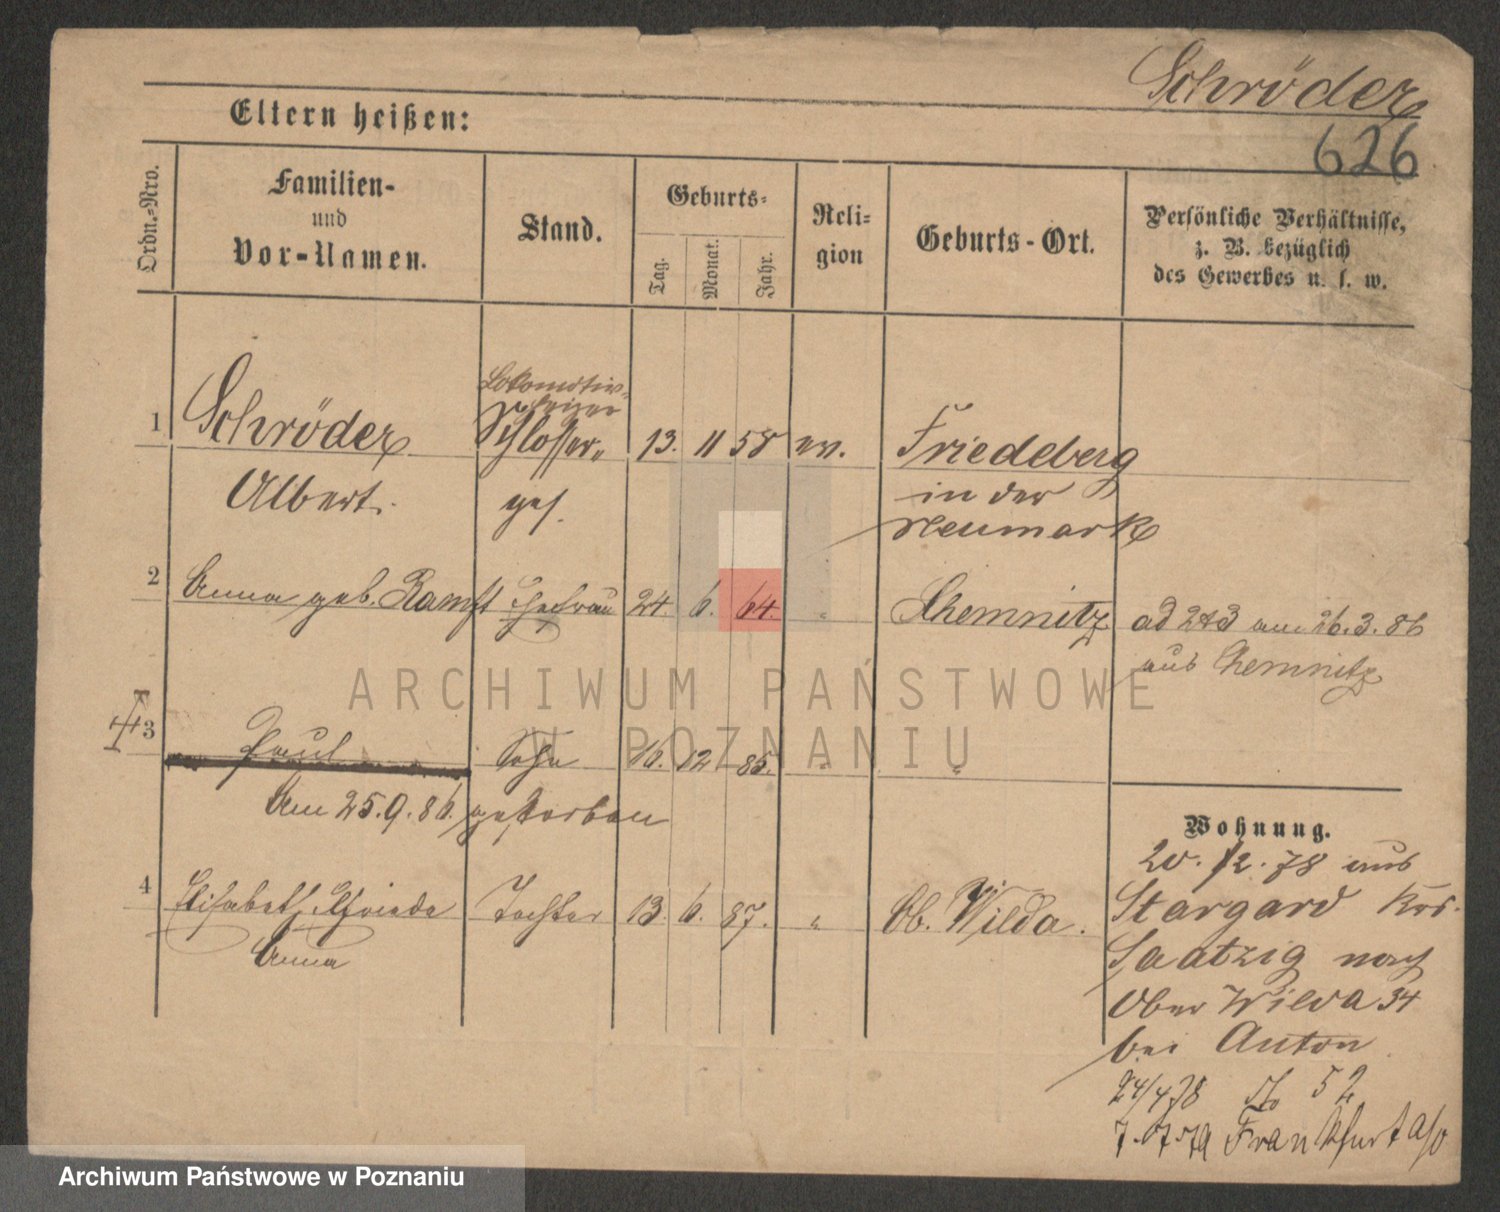 Schröder
626
Eltern heißen:
Ordn.-Nro.
Familien-
und
Vor-Namen.
Stand.
Geburts-
Tag.
Monat.
Jahr.
Reli-
gion
Geburts-Ort.
Persönliche Verhältnisse,
z. B. bezüglich
des Gewerbes u. s. w.
Lokomotiv-
heizer
1 Schröder Schlosser- 13. 11 58 ev. Friedeberg
Albert. ges. in der
Neumark
2 Anna geb. Ramft Ehefrau 24. 6. 64. " Chemnitz ad 2&3 am 26.3.86
aus Chemnitz
3 Paul Sohn 16. 12 85. " "
Am 25.9.86. gestorben
Wohnung.
20. 12. 78 aus
4 Elisabeth Elfriede Tochter 13. 6. 87. " Ob. Wilda. Stargard Krs.
Anna
Saatzig nach
Ober Wilda 34
bei Anton
24/4 78 52
7.7.79 Frankfurt a/o
ARCHIWUM PAŃSTWOWE
W POZNANIU
Archiwum Państwowe w Poznaniu